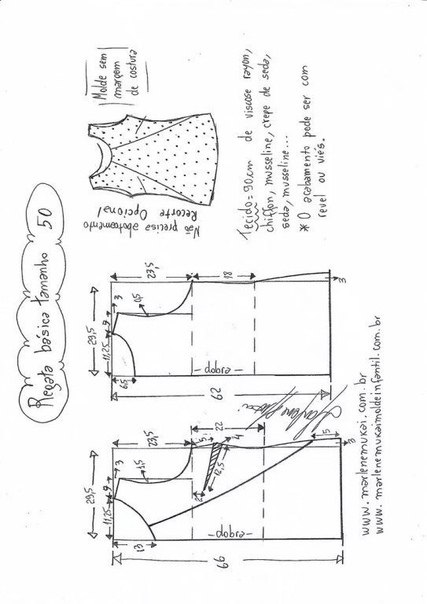 Regata básica tamanho 50
Molde sem
margem
de costura
Não precisa abotoamento
Recorte Opcional
Tecido = 90cm de viscose rayon,
chiffon, musseline, crepe de seda,
seda, musseline...
* O acabamento pode ser com
revel ou viés.
29,5
11,25
9
3
1,5
23,5
18
3
6,5
-dobra-
62
29,5
11,25
9
3
1,5
23,5
22
5
4
12,5
2
5
3
13
-dobra-
66
www.marlenemukai.com.br
www.marlenemukaimoldeinfantil.com.br